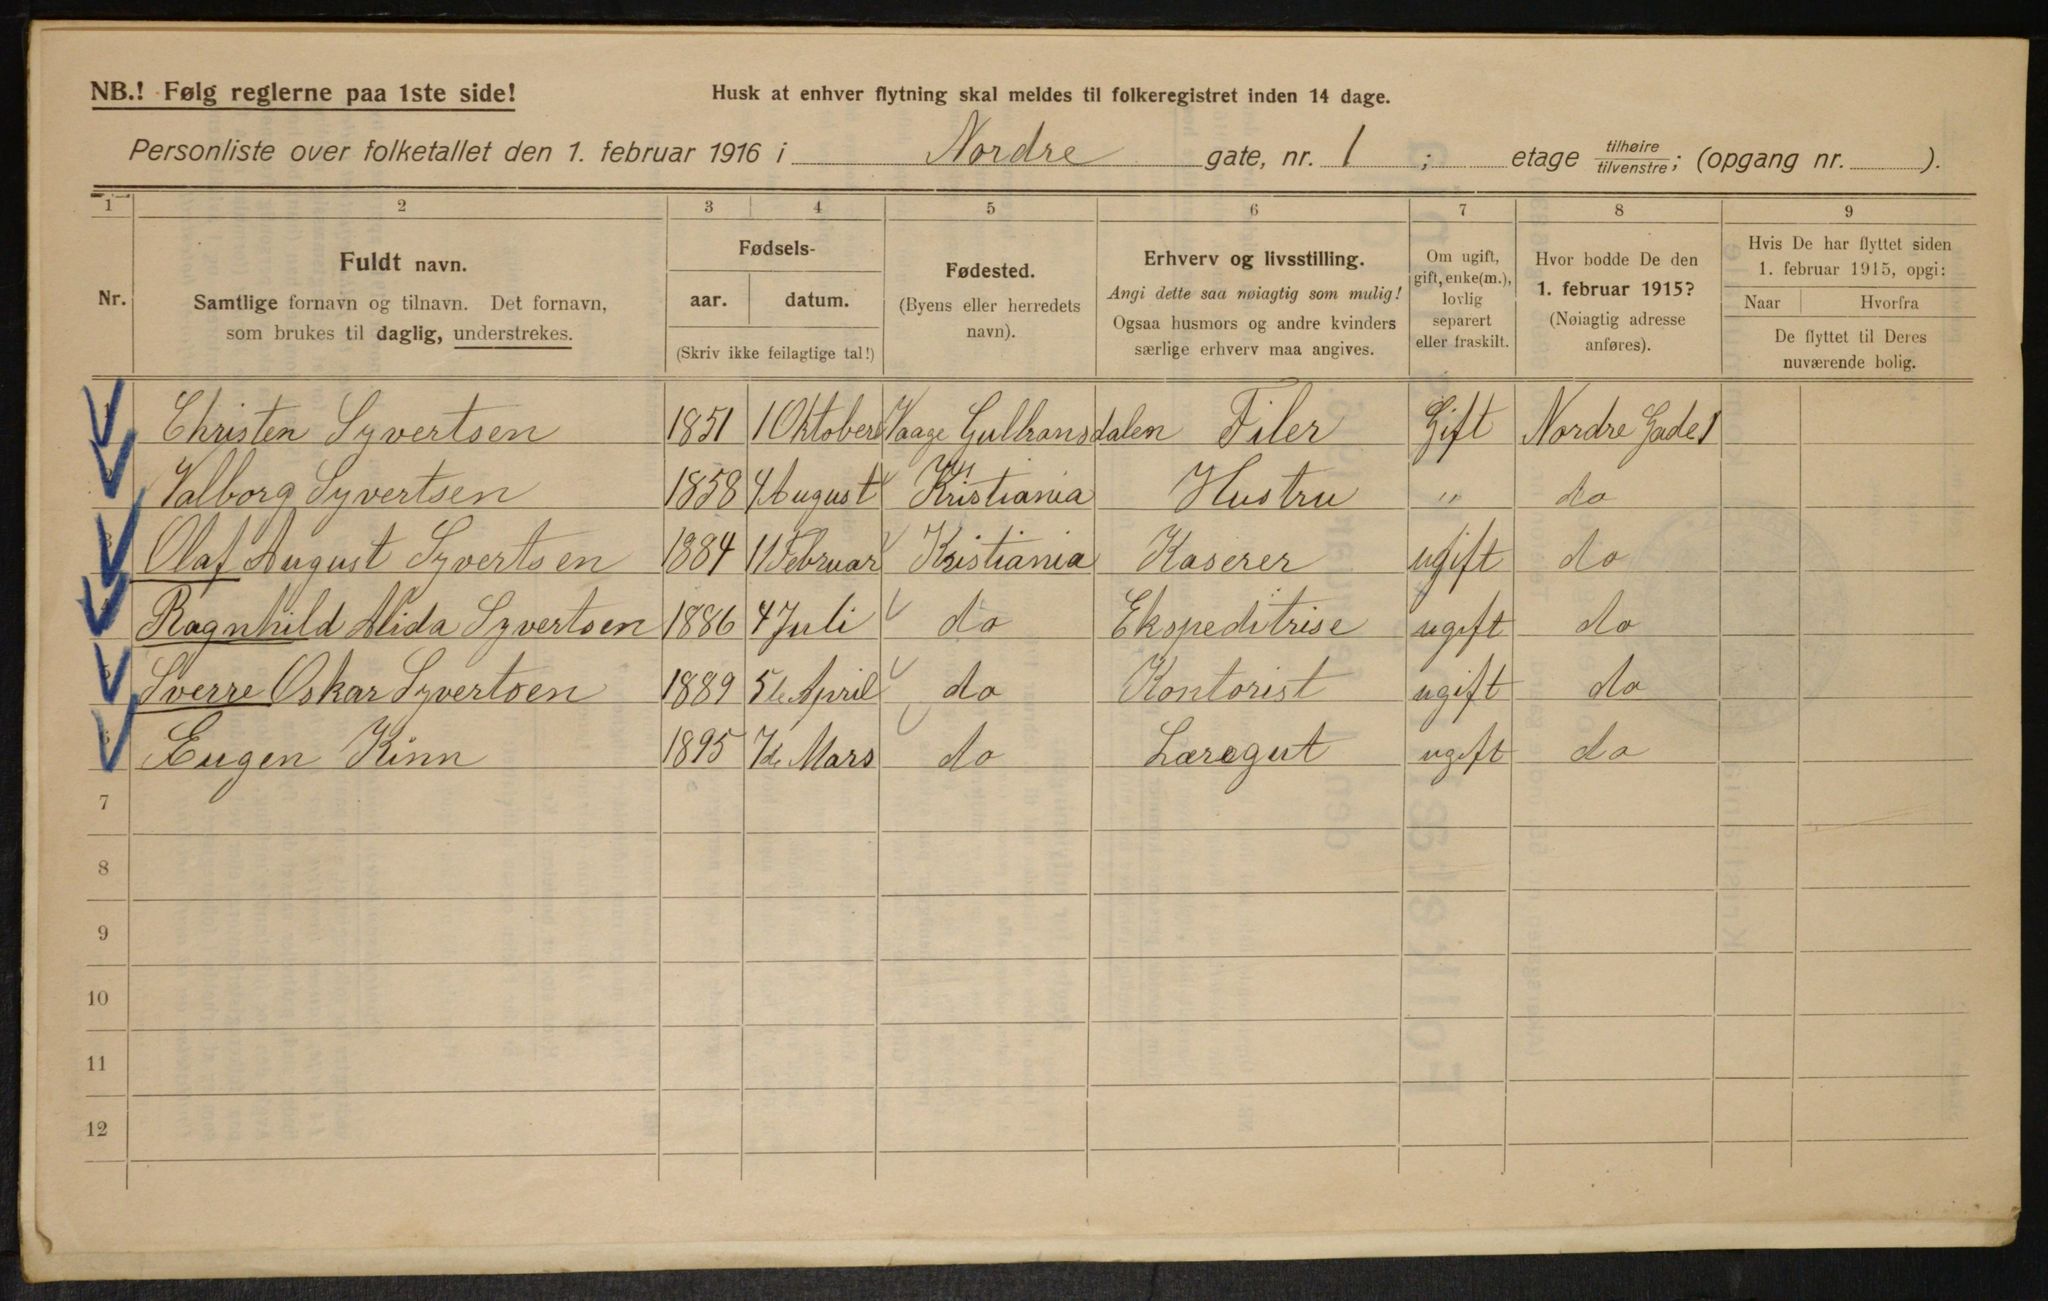 NB.! Følg reglerne paa 1ste side!
Husk at enhver flytning skal meldes til folkeregistret inden 14 dage.
Personliste over folketallet den 1. februar 1916 i Nordre gate, nr. 1; etage tilhøire/tilvenstre; (opgang nr. ).
1 2 3 4 5 6 7 8 9
Nr.
Fuldt navn.
Samtlige fornavn og tilnavn. Det fornavn,
som brukes til daglig, understrekes.
Fødsels-
aar. datum.
(Skriv ikke feilagtige tal!)
Fødested.
(Byens eller herredets
navn).
Erhverv og livsstilling.
Angi dette saa nøiagtig som mulig!
Ogsaa husmors og andre kvinders
særlige erhverv maa angives.
Om ugift,
gift, enke(m.),
lovlig
separert
eller fraskilt.
Hvor bodde De den
1. februar 1915?
(Nøiagtig adresse
anføres).
Hvis De har flyttet siden
1. februar 1915, opgi:
Naar Hvorfra
De flyttet til Deres
nuværende bolig.
1 Christen Syvertsen 1851 1 Oktober Vaage Gulbransdalen Filer Gift Nordre Gade 1
2 Valborg Syvertsen 1858 4 August Kristiania Hustru " do
3 Olaf August Syvertsen 1884 11 Februar Kristiania Kaserer ugift do
4 Ragnhild Alida Syvertsen 1886 4 Juli do Ekspeditrise ugift do
5 Sverre Oskar Syvertsen 1889 5te April do Kontorist ugift do
6 Eugen Kinn 1895 7de Mars do Læregut ugift do
7
8
9
10
11
12